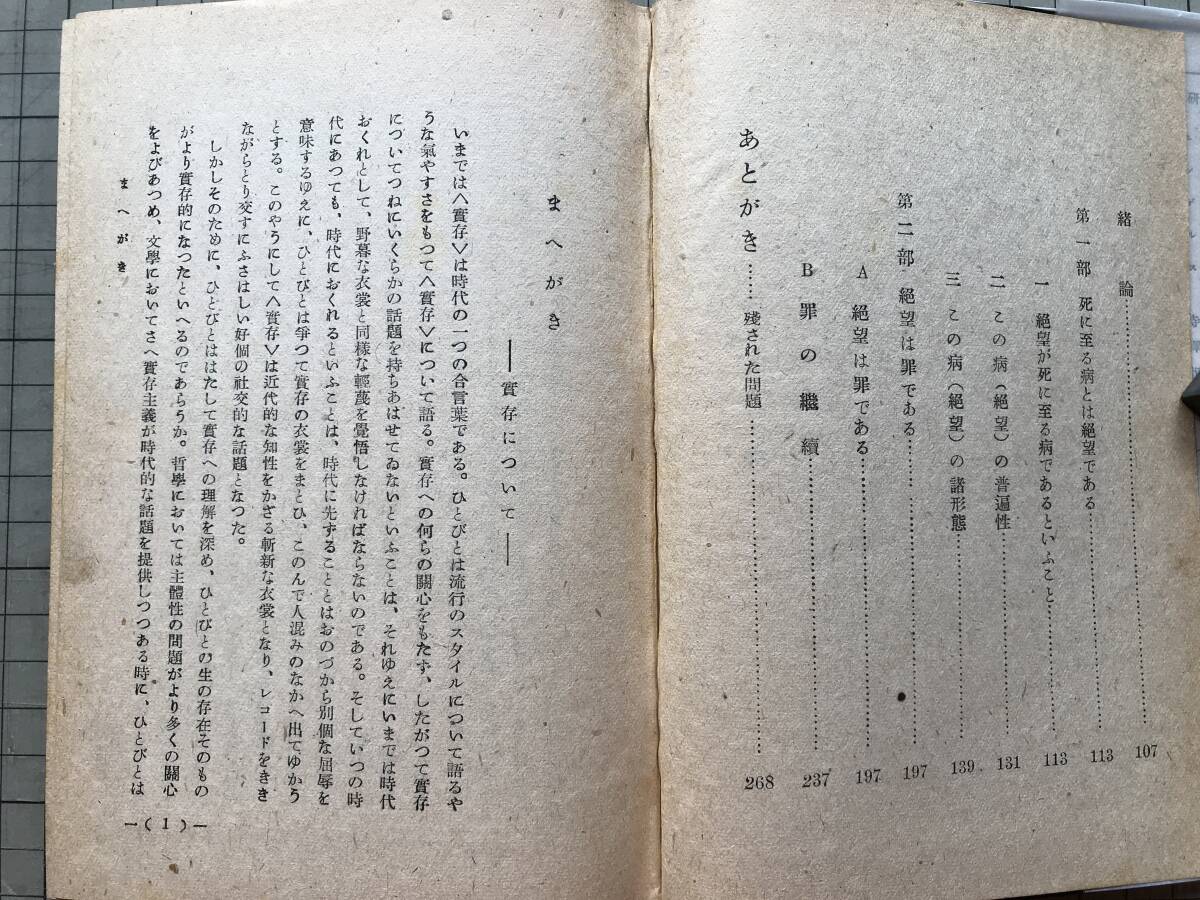 緒論……107
第一部 死に至る病とは絶望である……113
一 絶望が死に至る病であるといふこと……113
二 この病(絶望)の普遍性……131
三 この病(絶望)の諸形態……139
第二部 絶望は罪である……197
A 絶望は罪である……197
B 罪の繼續……237
あとがき……殘された問題……268
まへがき
――實存について――
いまでは〈實存〉は時代の一つの合言葉である。ひとびとは流行のスタイルについて語るや
うな氣やすさをもつて〈實存〉について語る。實存への何らの關心をもたず、したがつて實存
についてつねにいくらかの話題を持ちあはせてゐないといふことは、それゆえにいまでは時代
おくれとして、野暮な衣裳と同様な輕蔑を覺悟しなければならないのである。そしていつの時
代にあつても、時代におくれるといふことは、時代に先ずることとはおのづから別個な屈辱を
意味するゆえに、ひとびとは爭つて實存の衣裳をまとひ、このんで人混みのなかへ出てゆかう
とする。このやうにして〈實存〉は近代的な知性をかざる斬新な衣裳となり、レコードをきき
ながらとり交すにふさはしい好個の社交的な話題となつた。
しかしそのために、ひとびとははたして實存への理解を深め、ひとびとの生の存在そのもの
がより實存的になつたといへるのであらうか。哲學においては主體性の問題がより多くの關心
をよびあつめ、文學においてさへ實存主義が時代的な話題を提供しつつある時に、ひとびとは
まへがき
―(1)―